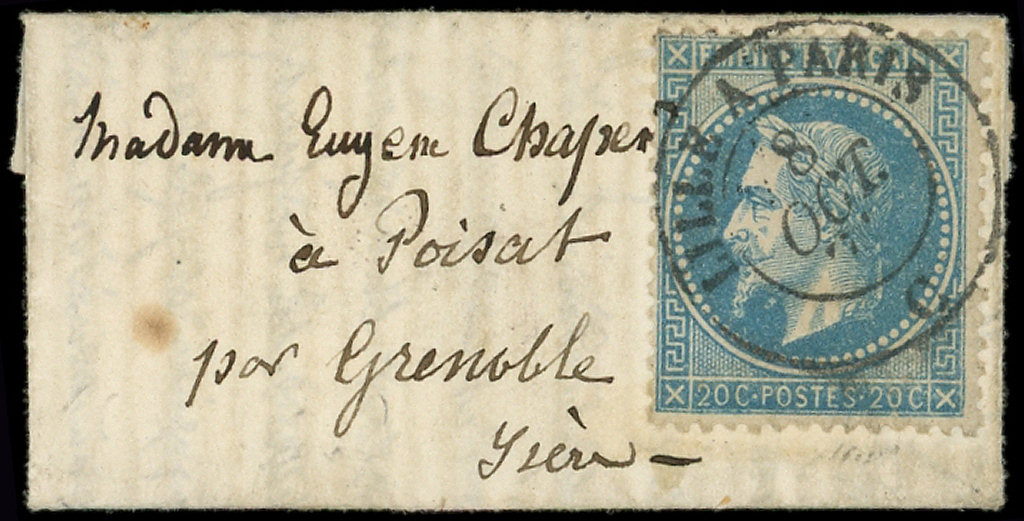 Madame Eugène Chaper
à Poisat
par Grenoble
Isère
EMPIRE FRANÇAIS
20C·POSTES·20C
LILLE A PARIS
8
OCT.
C